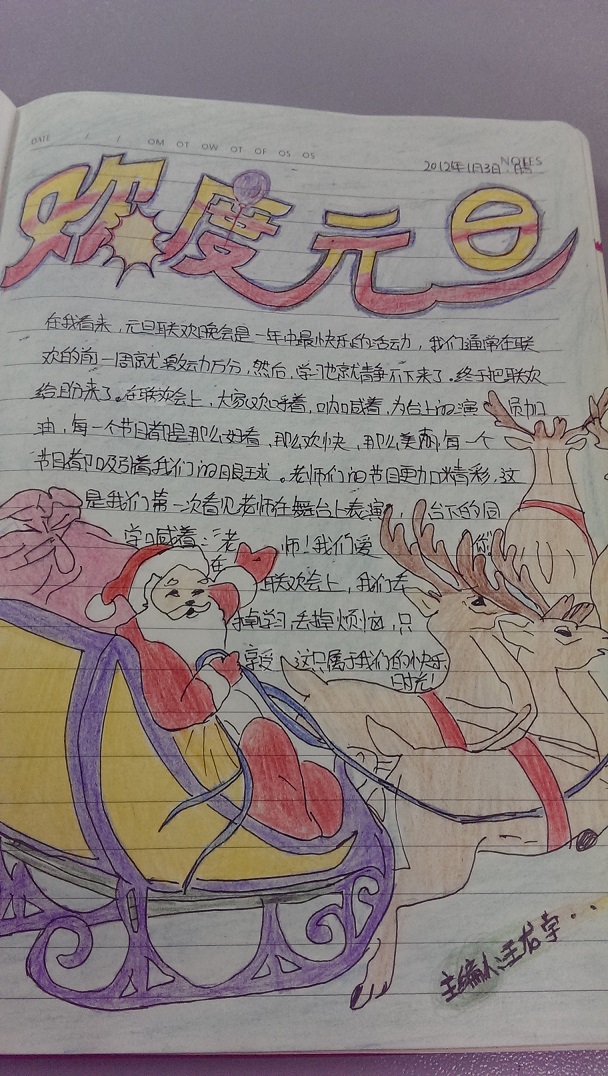 DATE / / OM OT OW OT OF OS OS
NOTES
2012年11月3日
欢度元旦
在我看来，元旦联欢晚会是一年中最快乐的活动，我们通常在联
欢的前一周就激动万分，然后，学习也就静不下来了。终于把联欢
给盼来了。在联欢会上，大家欢呼着，呐喊着，为台上的演员加
油，每一个节目都是那么好看，那么欢快，那么美丽，每一个
节目都吸引着我们的眼球。老师们的节目更加精彩，这
是我们第一次看见老师在舞台上表演，台下的同
学喊着：“老师！我们爱你
在联欢会上，我们丢
掉学习，丢掉烦恼，只
享受，这只属于我们的快乐
时光！
主编人：王